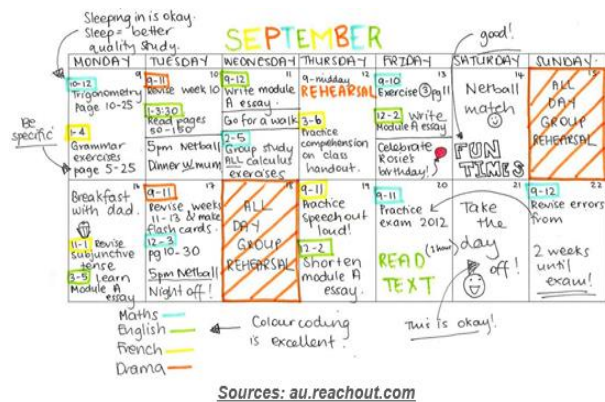 Sleeping in is okay.
Sleep = better
quality study.
SEPTEMBER
good!
MONDAY
TUESDAY
WEDNESDAY
THURSDAY
FRIDAY
SATURDAY
SUNDAY
9
10-12
Trigonometry
Page 10-25
1-4
Grammar
exercises
page 5-25
Be
specific
10
9-11
Revise week 10
1-3:30
Read pages
50-150
5pm Netball
Dinner w/mum
11
9-12
Write module
A essay.
Go for a walk
2-5
Group study
ALL calculus
exercises
12
9-midday
REHEARSAL
3-6
Practice
comprehension
on class
handout.
13
9-10
Exercise 3 pg 11
12-2 Write
Module A essay
Celebrate
Rosie's
birthday!
14
Netball
match
FUN
TIMES
15
ALL
DAY
GROUP
REHEARSAL
16
Breakfast
with dad.
11-1 Revise
subjunctive
tense
3-5 learn
Module A
essay
17
9-11
Revise weeks
11-13 & make
flash cards.
12-3
pg 10-30
5pm Netball
Night off!
18
ALL
DAY
GROUP
REHEARSAL
19
9-11
Practice
speech out
loud!
12-2
Shorten
module A
essay.
20
9-11
Practice
exam 2012
READ
TEXT
(1 hour)
21
Take
the
day
off!
22
9-12
Revise errors
from
2 weeks
until
exam!
Maths
English
French
Drama
Colour coding
is excellent.
This is okay!
Sources: au.reachout.com